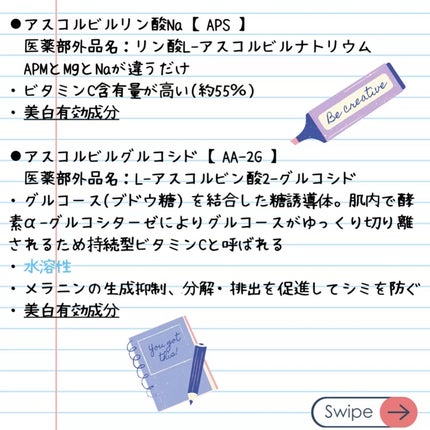 ●アスコルビルリン酸Na【 APS 】
医薬部外品名：リン酸L-アスコルビルナトリウム
APMとMgとNaが違うだけ
・ビタミンC含有量が高い(約55%)
・美白有効成分
Be creative
●アスコルビルグルコシド【 AA-2G 】
医薬部外品名：L-アスコルビン酸2-グルコシド
・グルコース(ブドウ糖) を結合した糖誘導体。肌内で酵
素α-グルコシターゼによりグルコースがゆっくり切り離
されるため持続型ビタミンCと呼ばれる
・水溶性
・メラニンの生成抑制、分解・排出を促進してシミを防ぐ
・美白有効成分
You got
this!
Swipe